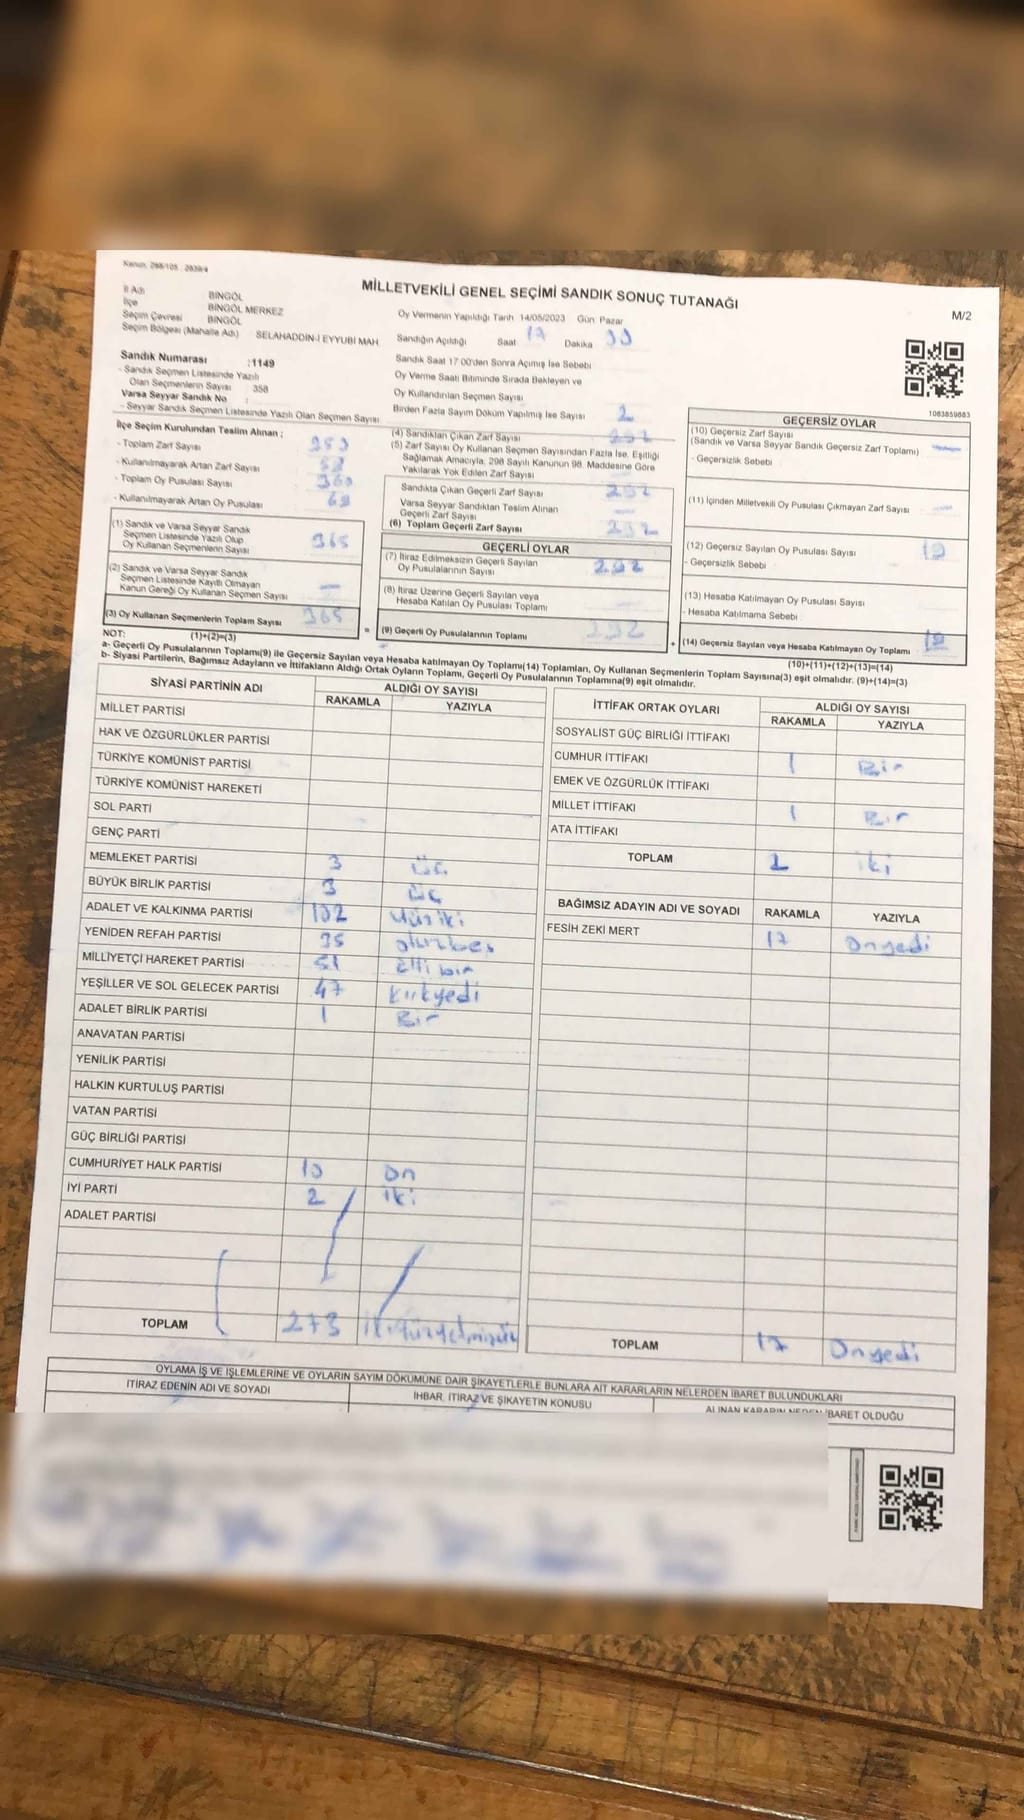 Kanun, 298/105 , 2839/4
MİLLETVEKİLİ GENEL SEÇİMİ SANDIK SONUÇ TUTANAĞI
M/2
İl Adı BİNGÖL
İlçe BİNGÖL MERKEZ
Seçim Çevresi BİNGÖL
Seçim Bölgesi (Mahalle Adı) SELAHADDİN-İ EYYUBİ MAH
Oy Vermenin Yapıldığı Tarih 14/05/2023 Gün: Pazar
Sandığın Açıldığı Saat 17 Dakika
Sandık Numarası :1149
- Sandık Seçmen Listesinde Yazılı
Olan Seçmenlerin Sayısı : 358
Varsa Seyyar Sandık No :
- Seyyar Sandık Seçmen Listesinde Yazılı Olan Seçmen Sayısı
Sandık Saat 17:00'den Sonra Açımış İse Sebebi
Oy Verme Saati Bitiminde Sırada Bekleyen ve
Oy Kullandırılan Seçmen Sayısı
Birden Fazla Sayım Döküm Yapılmış İse Sayısı 2
1083859883
İlçe Seçim Kurulundan Teslim Alınan ;
- Toplam Zarf Sayısı
- Kullanılmayarak Artan Zarf Sayısı
- Toplam Oy Pusulası Sayısı 360
- Kullanılmayarak Artan Oy Pusulası
(1) Sandık ve Varsa Seyyar Sandık
Seçmen Listesinde Yazılı Olup
Oy Kullanan Seçmenlerin Sayısı 365
(2) Sandık ve Varsa Seyyar Sandık
Seçmen Listesinde Kayıtlı Olmayan
Kanun Gereği Oy Kullanan Seçmen Sayısı –
(3) Oy Kullanan Seçmenlerin Toplam Sayısı 365
(1)+(2)=(3)
(4) Sandıktan Çıkan Zarf Sayısı
(5) Zarf Sayısı Oy Kullanan Seçmen Sayısından Fazla İse, Eşitliği
Sağlamak Amacıyla, 298 Sayılı Kanunun 98. Maddesine Göre
Yakılarak Yok Edilen Zarf Sayısı
Sandıkta Çıkan Geçerli Zarf Sayısı 292
Varsa Seyyar Sandıktan Teslim Alınan
Geçerli Zarf Sayısı –
(6) Toplam Geçerli Zarf Sayısı
GEÇERLİ OYLAR
(7) İtiraz Edilmeksizin Geçerli Sayılan
Oy Pusulalarının Sayısı 292
(8) İtiraz Üzerine Geçerli Sayılan veya
Hesaba Katılan Oy Pusulası Toplamı
= (9) Geçerli Oy Pusulalarının Toplamı 292
GEÇERSİZ OYLAR
(10) Geçersiz Zarf Sayısı
(Sandık ve Varsa Seyyar Sandık Geçersiz Zarf Toplamı) –
- Geçersizlik Sebebi
(11) İçinden Milletvekili Oy Pusulası Çıkmayan Zarf Sayısı –
(12) Geçersiz Sayılan Oy Pusulası Sayısı
- Geçersizlik Sebebi
(13) Hesaba Katılmayan Oy Pusulası Sayısı
- Hesaba Katılmama Sebebi
+ (14) Geçersiz Sayılan veya Hesaba Katılmayan Oy Toplamı
(10)+(11)+(12)+(13)=(14)
NOT:
a- Geçerli Oy Pusulalarının Toplamı(9) ile Geçersiz Sayılan veya Hesaba katılmayan Oy Toplamı(14) Toplamları, Oy Kullanan Seçmenlerin Toplam Sayısına(3) eşit olmalıdır. (9)+(14)=(3)
b- Siyasi Partilerin, Bağımsız Adayların ve İttifakların Aldığı Ortak Oyların Toplamı, Geçerli Oy Pusulalarının Toplamına(9) eşit olmalıdır.
SİYASİ PARTİNİN ADI ALDIĞI OY SAYISI
RAKAMLA YAZIYLA
MİLLET PARTİSİ
HAK VE ÖZGÜRLÜKLER PARTİSİ
TÜRKİYE KOMÜNİST PARTİSİ
TÜRKİYE KOMÜNİST HAREKETİ
SOL PARTİ
GENÇ PARTİ
MEMLEKET PARTİSİ 3 üç
BÜYÜK BİRLİK PARTİSİ 3 üç
ADALET VE KALKINMA PARTİSİ 102 yüziki
YENİDEN REFAH PARTİSİ 35 otuzbeş
MİLLİYETÇİ HAREKET PARTİSİ 51 Elli bir
YEŞİLLER VE SOL GELECEK PARTİSİ 47 kırkyedi
ADALET BİRLİK PARTİSİ 1 Bir
ANAVATAN PARTİSİ
YENİLİK PARTİSİ
HALKIN KURTULUŞ PARTİSİ
VATAN PARTİSİ
GÜÇ BİRLİĞİ PARTİSİ
CUMHURİYET HALK PARTİSİ 10 on
İYİ PARTİ 2 iki
ADALET PARTİSİ
TOPLAM 273
İTTİFAK ORTAK OYLARI ALDIĞI OY SAYISI
RAKAMLA YAZIYLA
SOSYALİST GÜÇ BİRLİĞİ İTTİFAKI
CUMHUR İTTİFAKI 1 Bir
EMEK VE ÖZGÜRLÜK İTTİFAKI
MİLLET İTTİFAKI 1 Bir
ATA İTTİFAKI
TOPLAM 2 iki
BAĞIMSIZ ADAYIN ADI VE SOYADI RAKAMLA YAZIYLA
FESİH ZEKİ MERT 17 onyedi
TOPLAM 17 Onyedi
OYLAMA İŞ VE İŞLEMLERİNE VE OYLARIN SAYIM DÖKÜMÜNE DAİR ŞİKAYETLERLE BUNLARA AİT KARARLARIN NELERDEN İBARET BULUNDUKLARI
İTİRAZ EDENİN ADI VE SOYADI İHBAR, İTİRAZ VE ŞİKAYETİN KONUSU ALINAN KARARIN NEDEN İBARET OLDUĞU